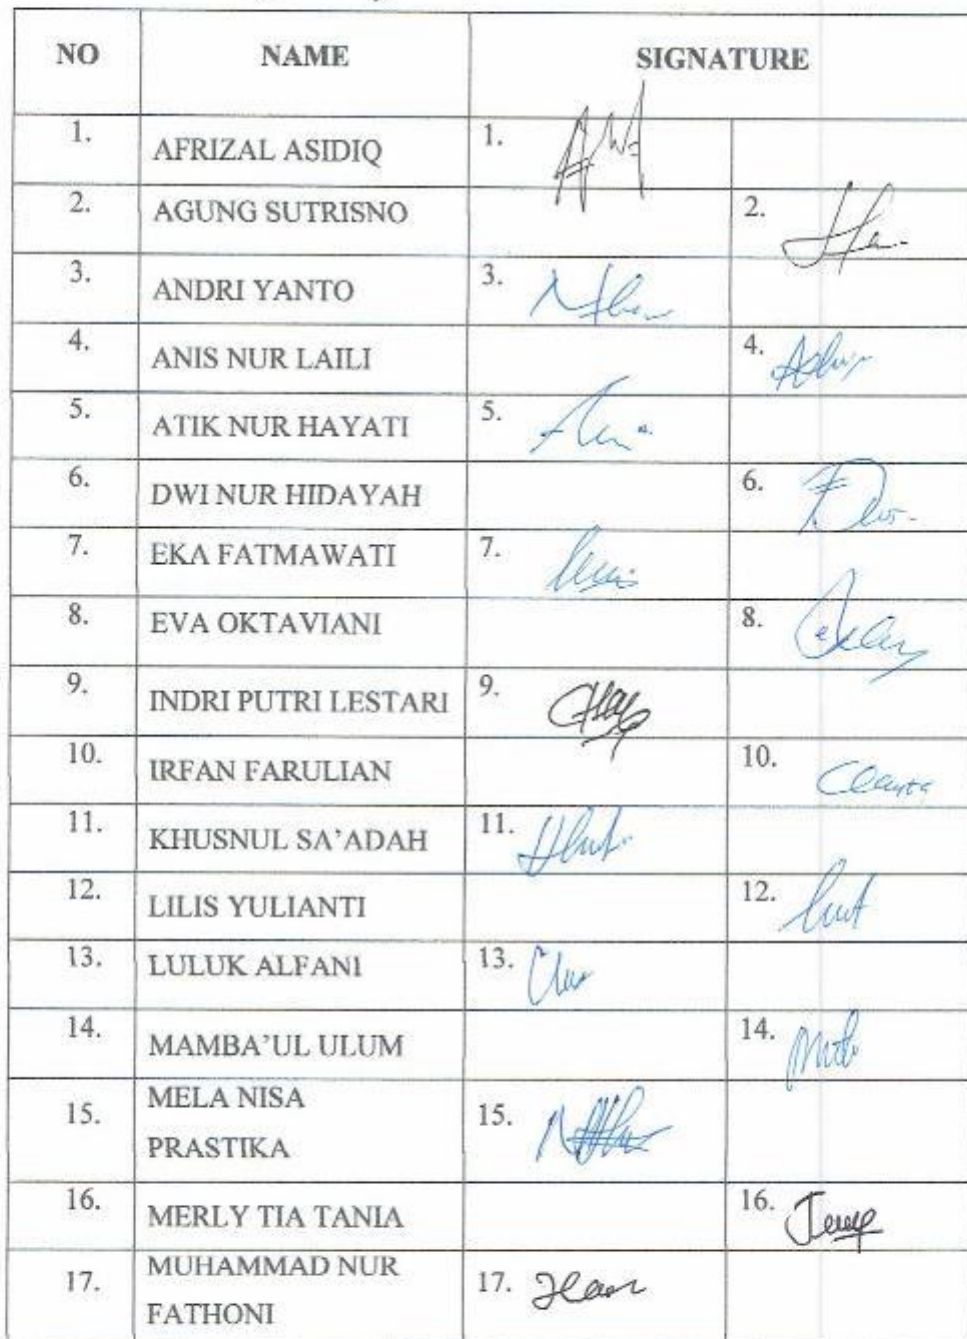 NO NAME SIGNATURE
1. AFRIZAL ASIDIQ 1.
2. AGUNG SUTRISNO 2.
3. ANDRI YANTO 3.
4. ANIS NUR LAILI 4.
5. ATIK NUR HAYATI 5.
6. DWI NUR HIDAYAH 6.
7. EKA FATMAWATI 7.
8. EVA OKTAVIANI 8.
9. INDRI PUTRI LESTARI 9.
10. IRFAN FARULIAN 10.
11. KHUSNUL SA'ADAH 11.
12. LILIS YULIANTI 12.
13. LULUK ALFANI 13.
14. MAMBA'UL ULUM 14.
15. MELA NISA 15.
PRASTIKA
16. MERLY TIA TANIA 16.
17. MUHAMMAD NUR 17.
FATHONI